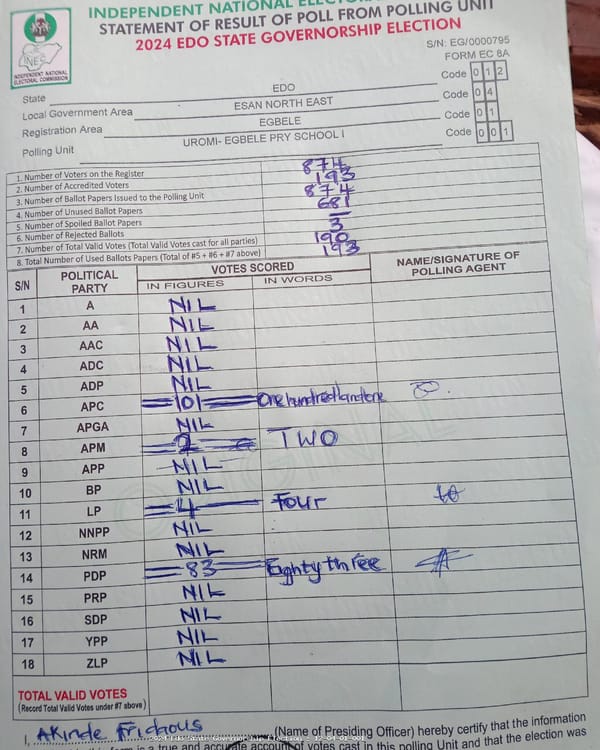 INDEPENDENT NATIONAL
STATEMENT OF RESULT OF POLL FROM POLLING UNIT
2024 EDO STATE GOVERNORSHIP ELECTION
INEC
INDEPENDENT NATIONAL
ELECTORAL COMMISSION
S/N: EG/0000795
FORM EC 8A
State EDO Code 0 1 2
Local Government Area ESAN NORTH EAST Code 0 4
Registration Area EGBELE Code 0 1
Polling Unit UROMI- EGBELE PRY SCHOOL I Code 0 0 1
1. Number of Voters on the Register 874
2. Number of Accredited Voters 193
3. Number of Ballot Papers Issued to the Polling Unit 874
4. Number of Unused Ballot Papers 681
5. Number of Spoiled Ballot Papers –
6. Number of Rejected Ballots 3
7. Number of Total Valid Votes (Total Valid Votes cast for all parties) 190
8. Total Number of Used Ballots Papers (Total of #5 + #6 + #7 above) 193
S/N POLITICAL PARTY VOTES SCORED NAME/SIGNATURE OF POLLING AGENT
IN FIGURES IN WORDS
1 A NIL
2 AA NIL
3 AAC NIL
4 ADC NIL
5 ADP NIL
6 APC 101 One hundred and one
7 APGA NIL
8 APM 2 TWO
9 APP NIL
10 BP NIL
11 LP 4 Four
12 NNPP NIL
13 NRM NIL
14 PDP 83 Eighty three
15 PRP NIL
16 SDP NIL
17 YPP NIL
18 ZLP NIL
TOTAL VALID VOTES
(Record Total Valid Votes under #7 above)
I, Akinde (Name of Presiding Officer) hereby certify that the information
is a true and accurate account of votes cast in this polling Unit and that the election was